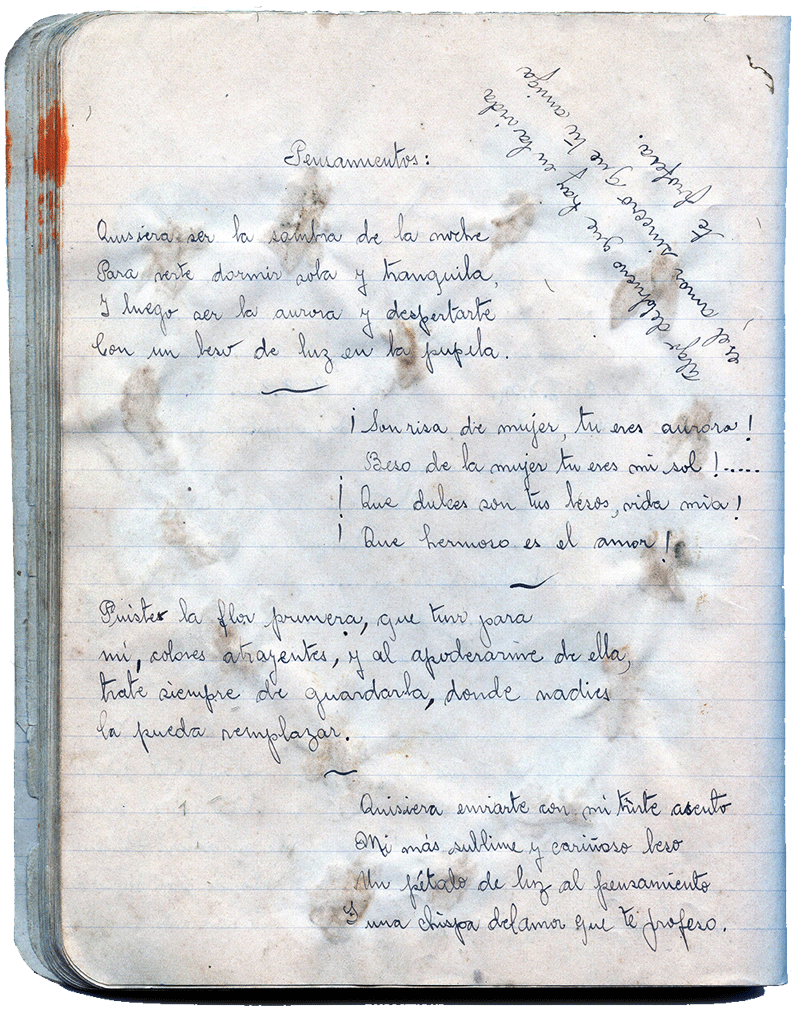 Pensamientos:
Quisiera ser la sombra de la noche
Para verte dormir sola y tranquila,
Y luego ser la aurora y despertarte
Con un beso de luz en la pupila.
¡Sonrisa de mujer, tu eres aurora!
Beso de la mujer tu eres mi sol!.....
¡Que dulces son tus besos, vida mia!
¡Que hermoso es el amor!
Fuistes la flor primera, que tuvo para
mi, colores atrayentes, y al apoderarme de ella,
trate siempre de guardarla, donde nadies
la pueda remplazar.
Quisiera enviarte con mi triste asento
Mi más sublime y cariñoso beso
Un pétalo de luz al pensamiento
Y una chispa del amor que te profeso.
Algo de bueno que hay en la vida
es el amor sincero que tu amiga
te profesa.